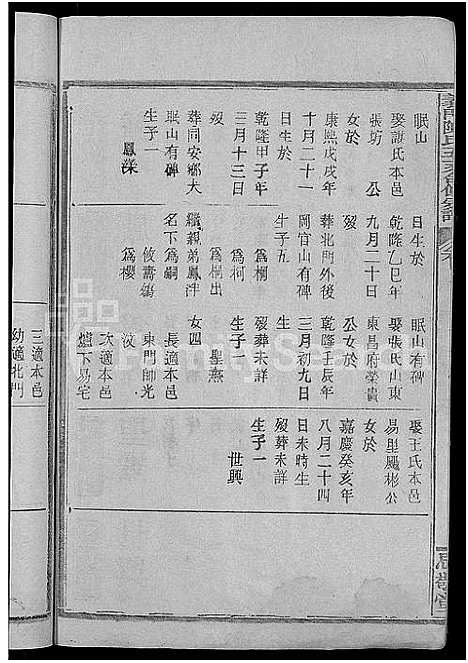 眠山
娶謝氏本邑
張坊 公
女於
康熙戊戌年
十月二十一
乾隆甲子年
三月十三日
歿
葬同安鄉大
眠山有碑
生子一
鳳深
日生於
乾隆乙巳年
九月二十日
歿
葬北門外後
岡官山有碑
生子五
為桐
為柯
為桐出
繼親弟鳳泮
名下為嗣
攸壽鴣
為櫻
眠山有碑
娶張氏山東
東昌府榮貴
公女於
乾隆壬辰年
三月初九日
歿葬未詳
生子一
聖燕
女四
長適本邑
東門帥光
汶
次適本邑
爐下易宅
娶王氏本邑
易里颺彬公
女於
嘉慶癸亥年
八月二十四
日未時生
歿葬未詳
生子一
世興
三適本邑
幼適北門